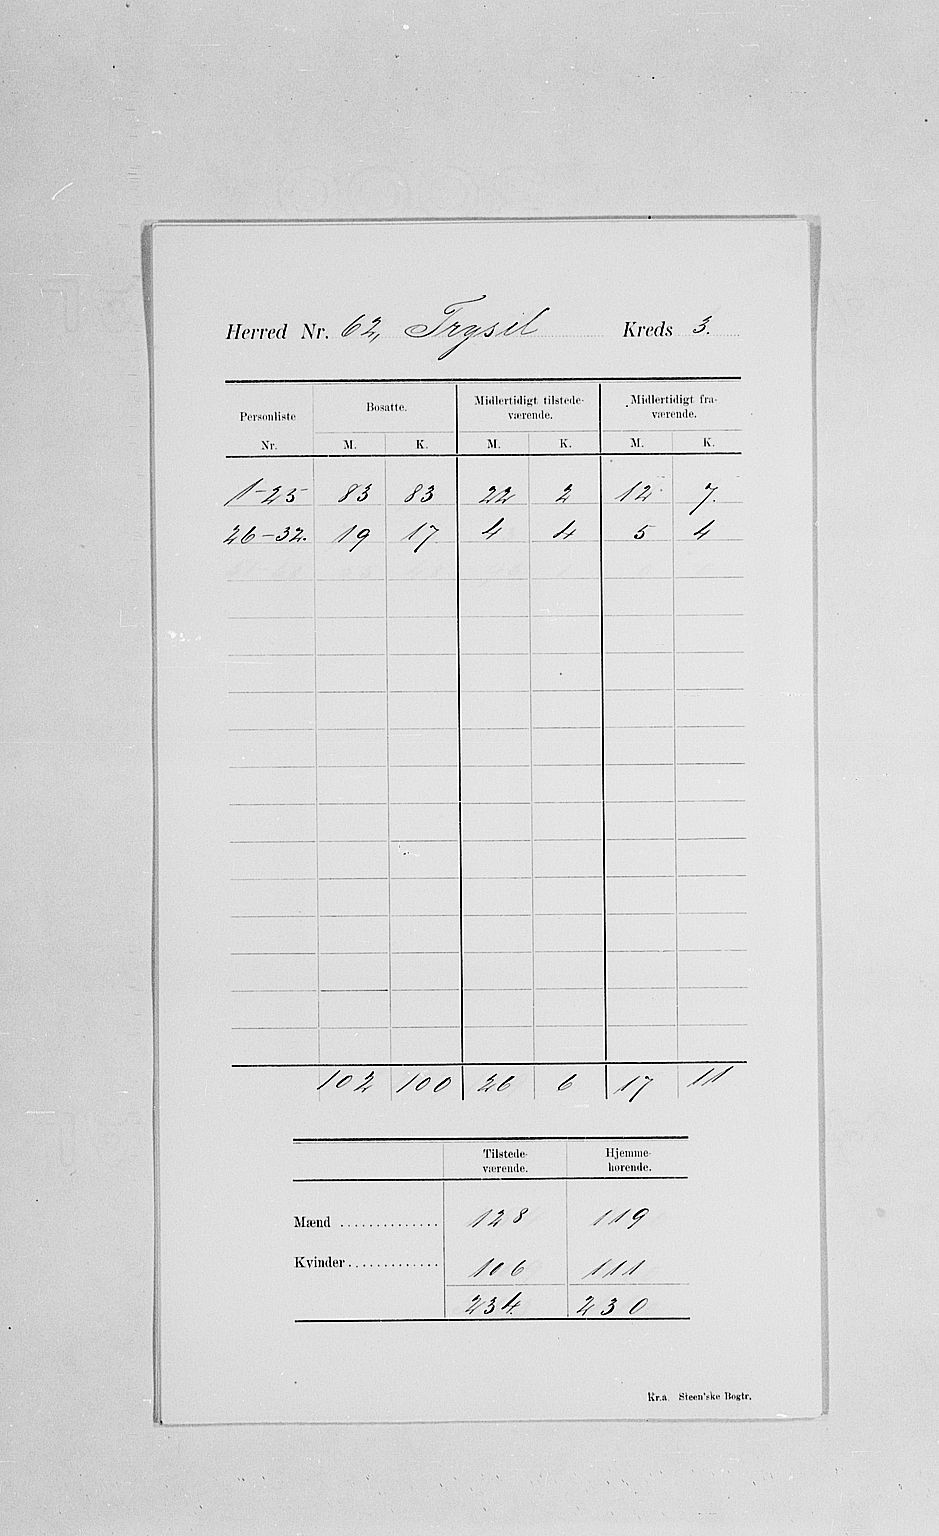 Herred Nr. 62, Trysil Kreds 3.
Personliste Nr. Bosatte. Midlertidigt tilstede-værende. Midlertidigt fra-værende.
M. K. M. K. M. K.
1-25 83 83 22 2 12 7.
26-32. 19 17 4 4 5 4
102 100 26 6 17 11
Tilstede-værende. Hjemme-hørende.
Mænd .............. 128 119
Kvinder ............. 106 111
234. 230
Kr.a. Steen'ske Bogtr.